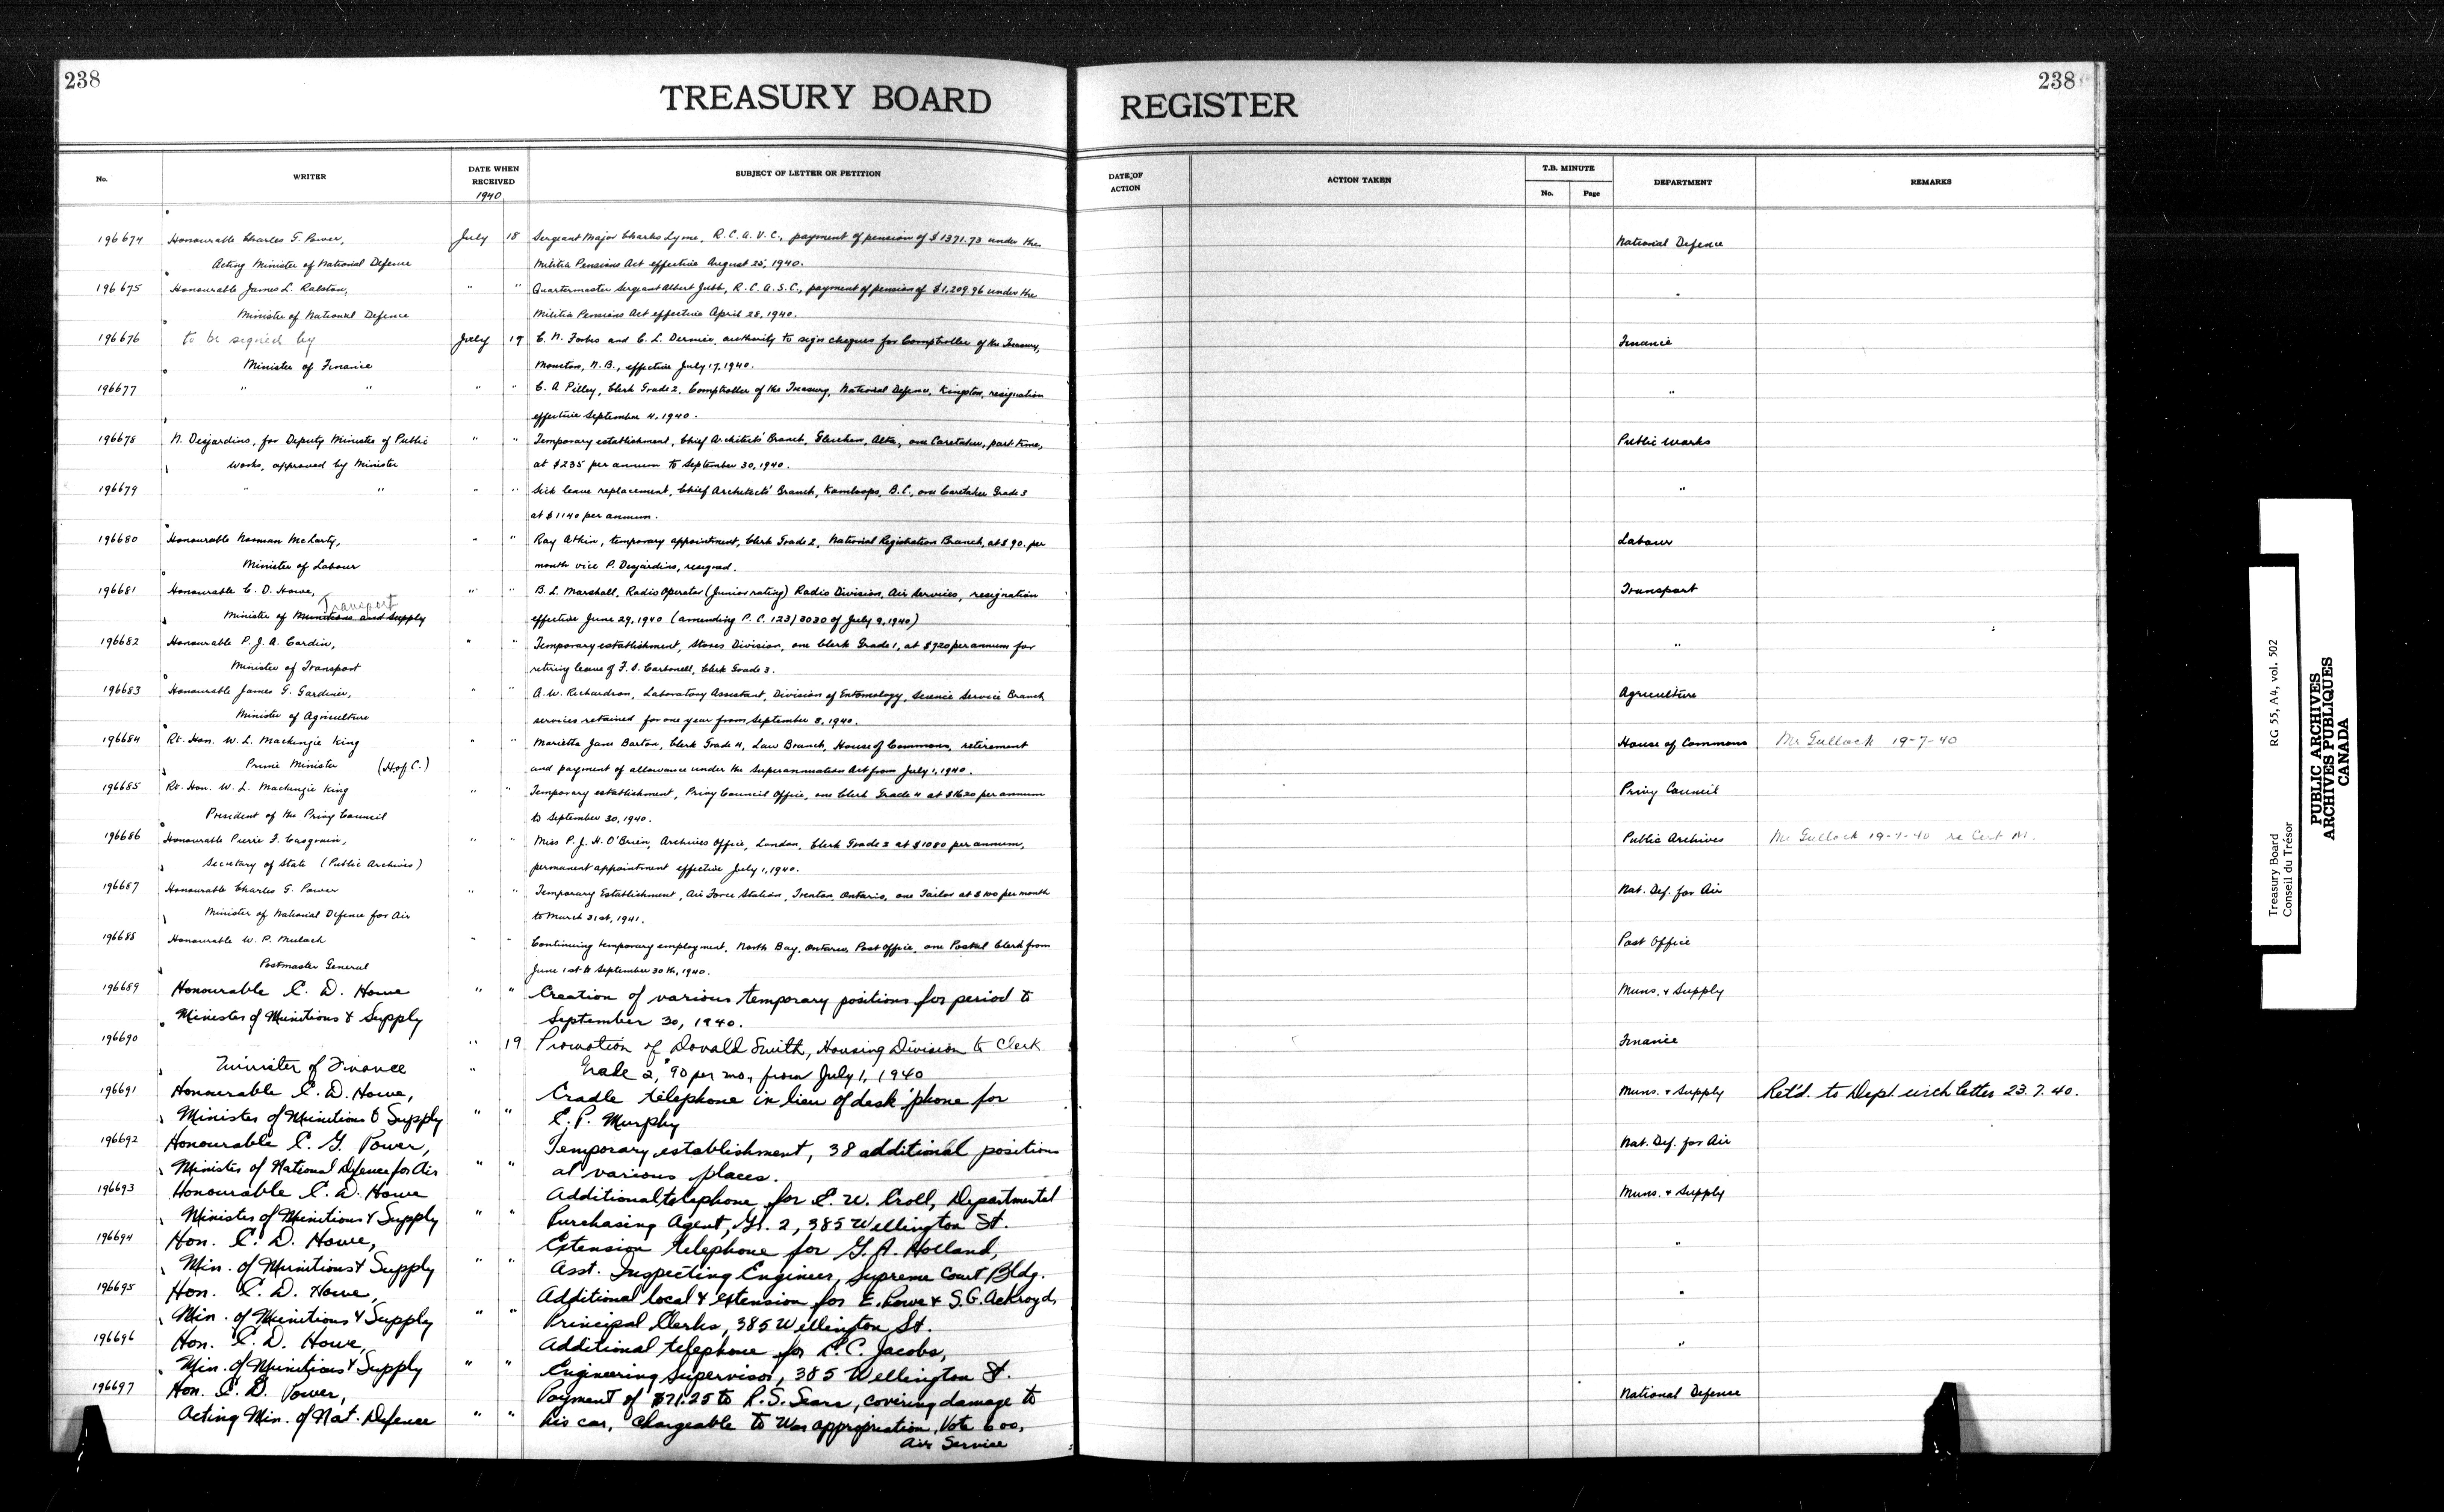 238
TREASURY BOARD REGISTER
238
No.
WRITER
DATE WHEN RECEIVED
1940
SUBJECT OF LETTER OR PETITION
DATE OF ACTION
ACTION TAKEN
T.B. MINUTE
No.
Page
DEPARTMENT
REMARKS
196674 Honourable Charles G. Power, July 18 Sergeant Major Charles Lyme, R.C.A.V.C., payment of pension of $1371.73 under the National Defence
Acting Minister of National Defence Militia Pensions Act effective August 25, 1940.
196675 Honourable James L. Ralston, " " Quartermaster Sergeant Albert Jubb, R.C.A.S.C., payment of pension of $1,209.96 under the "
Minister of National Defence Militia Pensions Act effective April 28, 1940.
196676 to be signed by July 19 C. N. Forbes and C. L. Dernier, authority to sign cheques for Comptroller of the Treasury, Finance
Minister of Finance Moncton, N.B., effective July 17, 1940.
196677 " " " " C. A Pilley, Clerk Grade 2, Comptroller of the Treasury, National Defence, Kingston, resignation "
effective September 4, 1940.
196678 N. Desjardins, for Deputy Minister of Public " " Temporary establishment, Chief Architects' Branch, Gleichen, Alta, one Caretaker, part time, Public Works
Works, approved by Minister at $235 per annum to September 30, 1940.
196679 " " " " Sick leave replacement, Chief Architects' Branch, Kamloops, B.C., one Caretaker Grade 3 "
at $1140 per annum.
196680 Honourable Norman McLarty, " " Ray Atkin, temporary appointment, Clerk Grade 2, National Registration Branch, at $90. per Labour
Minister of Labour month vice P. Desjardins, resigned.
196681 Honourable C. D. Howe, " " B. L. Marshall, Radio Operator (Junior rating) Radio Division, Air Services, resignation Transport
Transport
Minister of Munitions and Supply effective June 29, 1940 (amending P.C. 123/3030 of July 9, 1940)
196682 Honourable P. J. A. Cardin, " " Temporary establishment, Stores Division, one Clerk Grade 1, at $720 per annum for "
Minister of Transport retiring leave of F. S. Carbonell, Clerk Grade 3.
196683 Honourable James G. Gardiner, " " A. W. Richardson, Laboratory Assistant, Division of Entomology, Science Service Branch Agriculture
Minister of Agriculture services retained for one year from September 8, 1940.
196684 Rt. Hon. W. L. Mackenzie King " " Marietta Jane Barton, Clerk Grade 4, Law Branch, House of Commons, retirement House of Commons Mr Gullock 19-7-40
Prime Minister (H. of C.) and payment of allowance under the Superannuation Act from July 1, 1940.
196685 Rt. Hon. W. L. Mackenzie King " " Temporary establishment, Privy Council Office, one Clerk Grade 4 at $1620 per annum Privy Council
President of the Privy Council to September 30, 1940.
196686 Honourable Pierre F. Casgrain, " " Miss P. J. H. O'Brien, Archives Office, London, Clerk Grade 2 at $1080 per annum, Public Archives Mr Gullock 19-7-40 re Cert
Secretary of State (Public Archives) permanent appointment effective July 1, 1940.
196687 Honourable Charles G. Power " " Temporary Establishment, Air Force Station, Trenton, Ontario, one Tailor at $100 per month Nat. Def. for Air
Minister of National Defence for Air to March 31st, 1941.
196688 Honourable W. P. Mulock " " Continuing temporary employment, North Bay, Ontario, Post Office, one Postal Clerk from Post Office
Postmaster General June 1st to September 30th, 1940.
196689 Honourable C. D. Howe " " Creation of various temporary positions for period to Muns. & Supply
Minister of Munitions & Supply September 30, 1940.
196690 " 19 Promotion of Donald Smith, Housing Division to Clerk Finance
Minister of Finance " Grade 2, $90 per mo, from July 1, 1940
196691 Honourable C. D. Howe, Cradle telephone in lieu of desk 'phone for Muns. & Supply Ret'd. to Dept. with letter 23.7.40.
Minister of Munitions & Supply " " C. P. Murphy
196692 Honourable C. G. Power, Temporary establishment, 38 additional positions Nat. Def. for Air
Minister of National Defence for Air " " at various places.
196693 Honourable C. D. Howe Additional telephone for C. W. Croll, Departmental Muns. & Supply
Minister of Munitions & Supply " " Purchasing Agent, Gr. 2, 385 Wellington St.
196694 Hon. C. D. Howe, Extension telephone for G. A. Holland, "
Min. of Munitions & Supply " " Asst. Inspecting Engineer, Supreme Court Bldg.
196695 Hon. C. D. Howe, Additional local & extension for E. Rowe & S. G. Ackroyd, "
Min. of Munitions & Supply " " Principal Clerks, 385 Wellington St.
196696 Hon. C. D. Howe, Additional telephone for C. C. Jacobs, "
Min. of Munitions & Supply " " Engineering Supervisor, 385 Wellington St.
196697 Hon. C. D. Power, Payment of $71.25 to R. S. Sears, covering damage to National Defence
Acting Min. of Nat. Defence " " his car, chargeable to War appropriation, Vote 600,
Air Service
Treasury Board RG 55, A4, vol. 502
Conseil du Trésor
PUBLIC ARCHIVES
ARCHIVES PUBLIQUES
CANADA